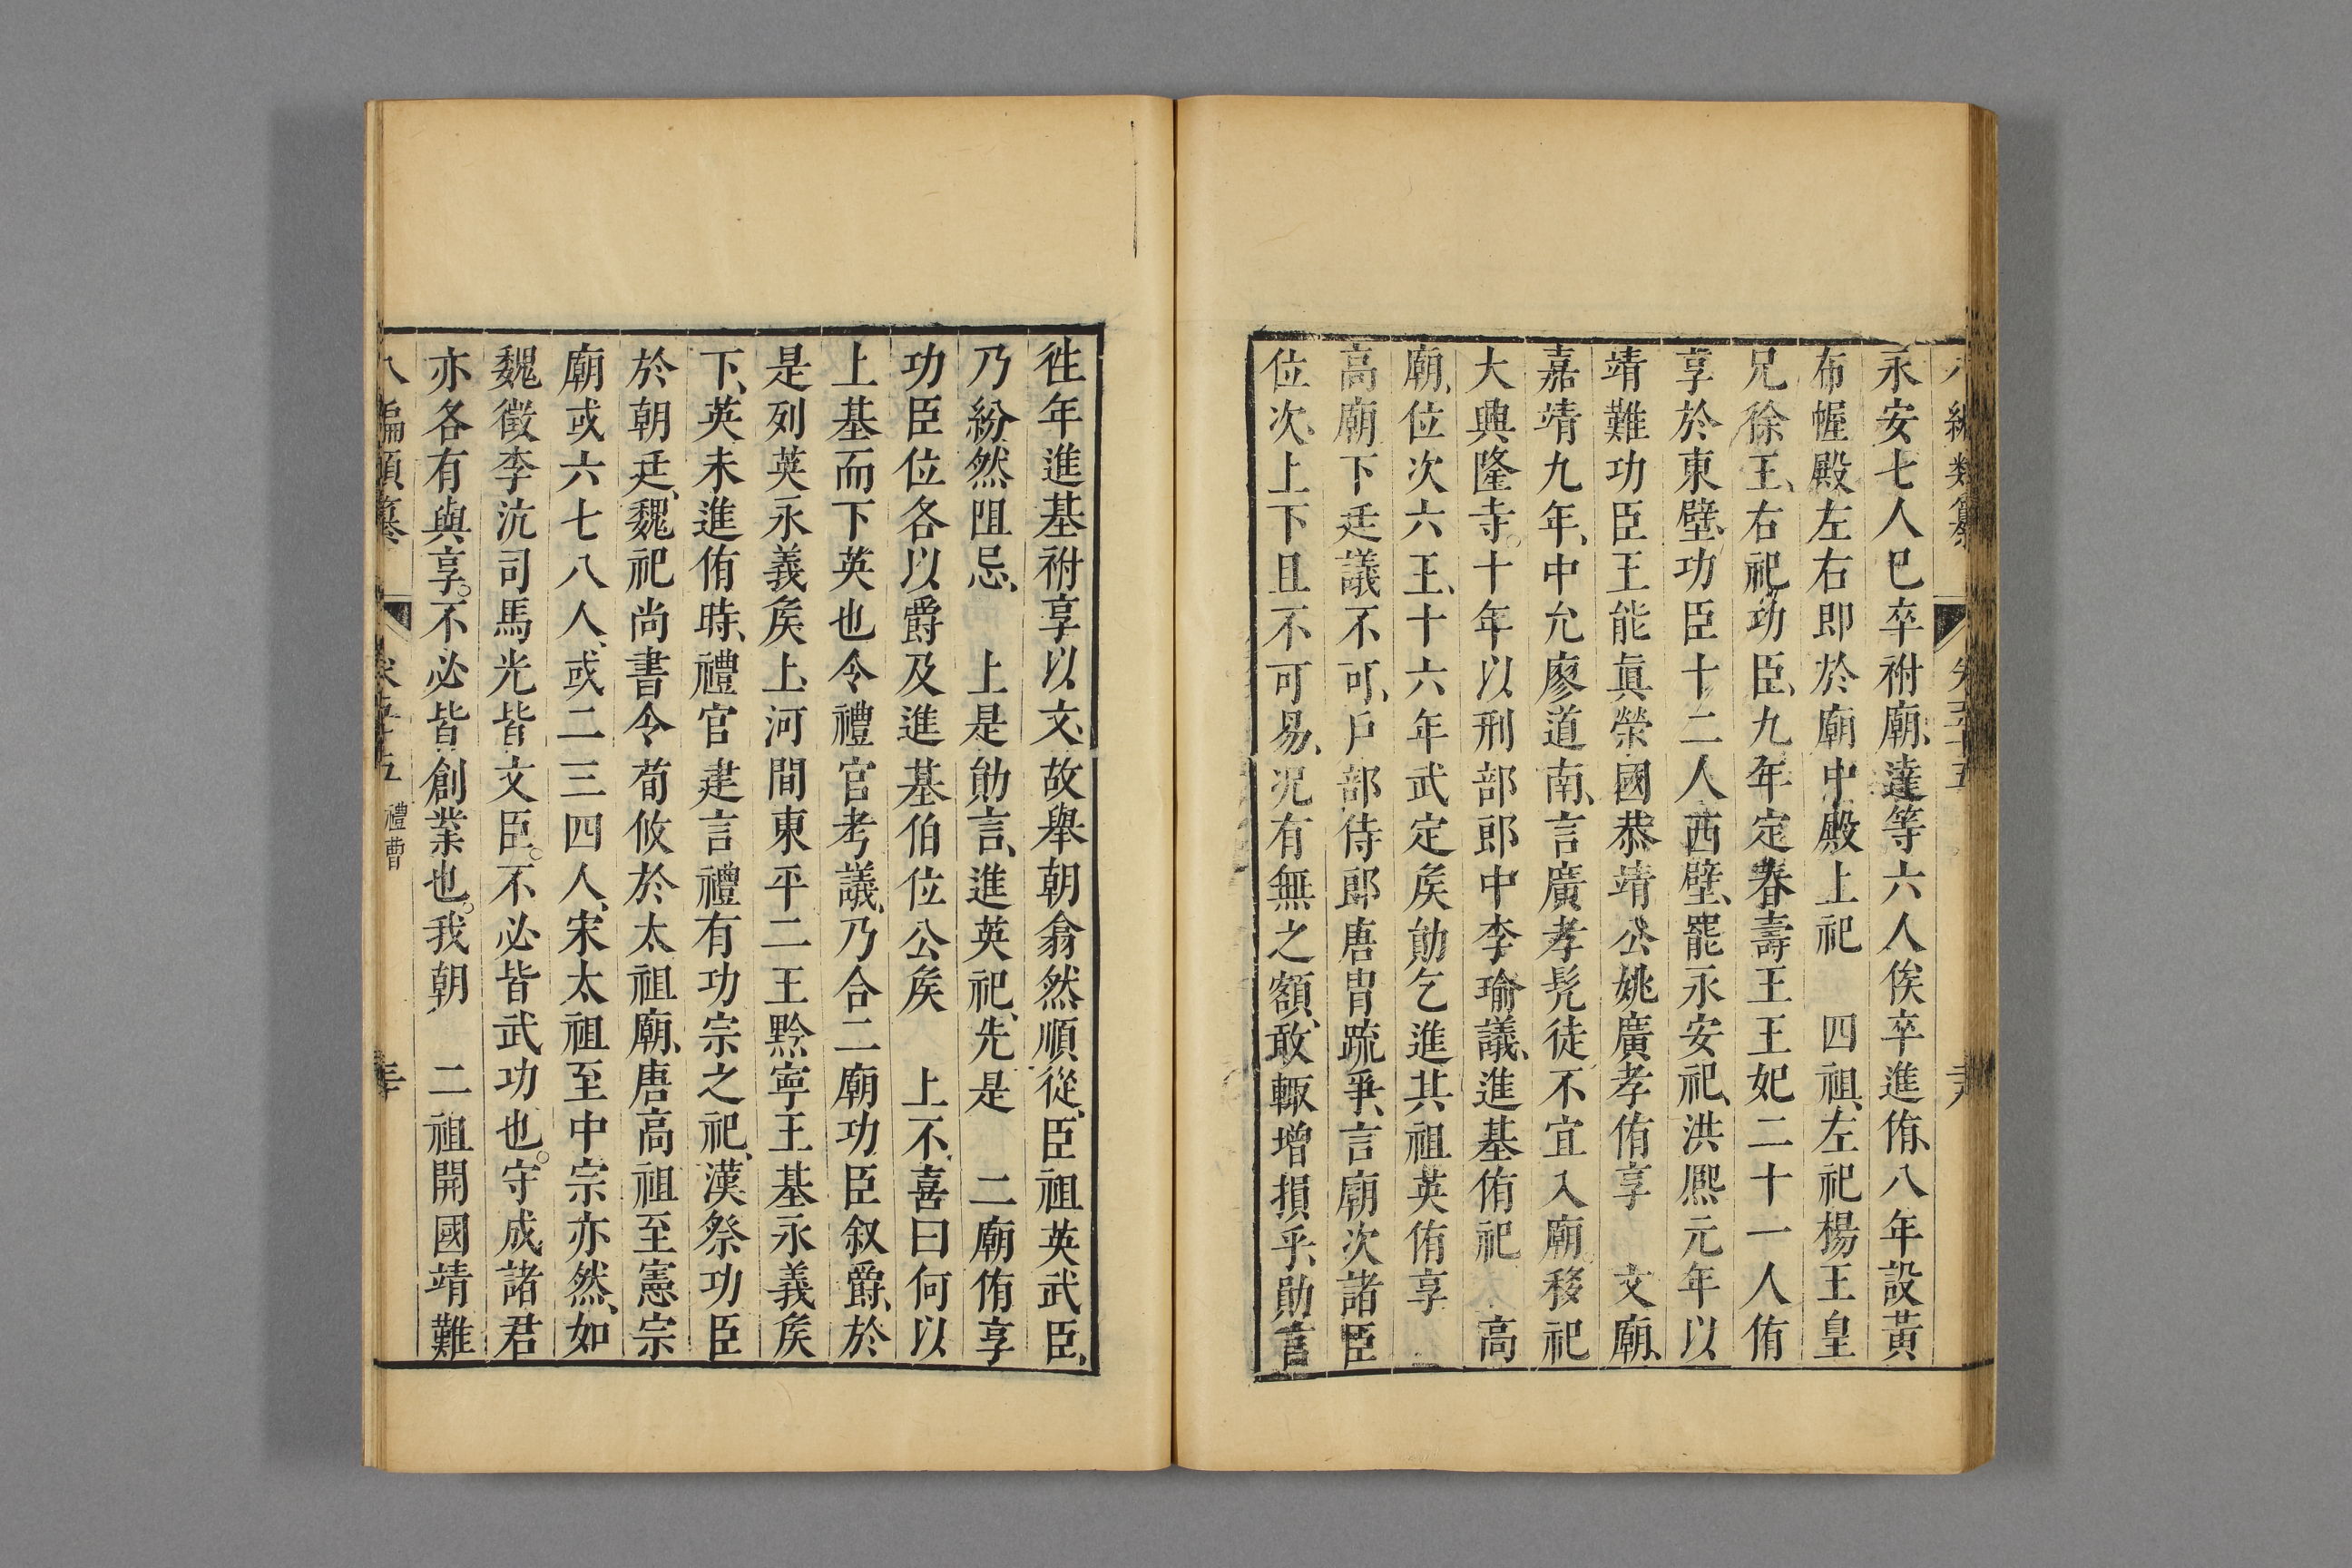 永安七人已卒祔廟、達等六人俟卒進侑、八年設黃
布幄殿左右即於廟中殿上祀　四祖、左祀楊王皇
兄徐王、右祀功臣、九年定春壽王王妃二十一人侑
享於東壁、功臣十二人西壁、罷永安祀、洪熈元年以
靖難功臣王能眞榮國恭靖公姚廣孝侑享　文廟、
嘉靖九年、中允廖道南、言廣孝髡徒不宜入廟。移祀
大興隆寺。十年以刑部郎中李瑜議、進基侑祀　高
廟、位次六王、十六年武定矦勛乞進其祖英侑享
高廟下廷議不可、戶部侍郎唐胄疏爭、言廟次諸臣
位次、上下且不可易、况有無之額、敢輙增損乎、勛言
徃年進基祔享以文、故舉朝翕然順從、臣祖英武臣、
乃紛然阻忌、　上是勛言、進英祀、先是　二廟侑享
功臣位各以爵及進基伯位公矦　上不喜曰何以
上基而下英也令禮官考議、乃合二廟功臣叙爵、於
是列英永義矦上、河間東平二王黔寧王基永義矦
下、英未進侑時、禮官建言禮有功宗之祀、漢祭功臣
於朝廷、魏祀尚書令荀攸於太祖廟、唐高祖至憲宗
廟或六七八人、或二三四人、宋太祖至中宗亦然、如
魏徵李沆司馬光皆文臣。不必皆武功也。守成諸君
亦各有與享。不必皆創業也。我朝　二祖開國靖難
八編類纂　卷五十五　禮曹　三十